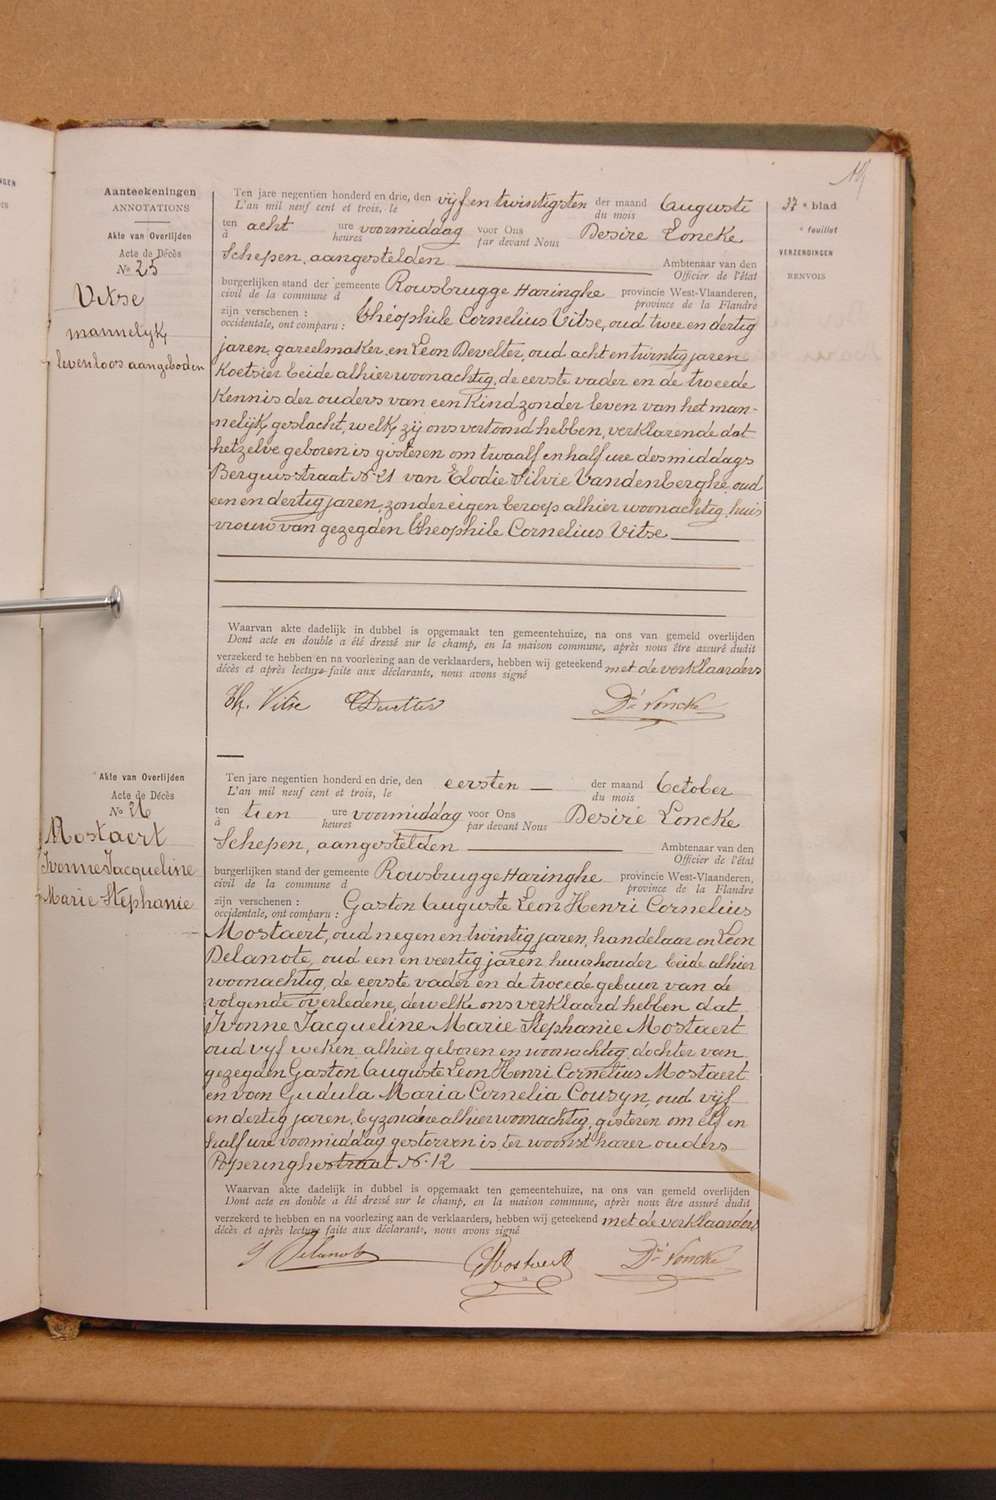 37e blad
e feuillet
VERZENDINGEN
RENVOIS
Aanteekeningen
ANNOTATIONS
Akte van Overlijden
Acte de Décès
No 25
Vitse
mannelijk
levenloos aangeboden
Ten jare negentien honderd en drie, den vijf en twintigsten der maand Auguste
L'an mil neuf cent et trois, le du mois
ten acht ure voormiddag voor Ons Desiré Loncke
à heures par devant Nous
Schepen, aangestelden Ambtenaar van den
Officier de l'état
burgerlijken stand der gemeente Rousbrugge Haringhe provincie West-Vlaanderen,
civil de la commune d province de la Flandre
zijn verschenen : Théophile Cornelius Vitse, oud twee en dertig
occidentale, ont comparu :
jaren, gareelmaker, en Leon Develter, oud acht en twintig jaren
Koetsier beide alhier woonachtig, de eerste vader en de tweede
Kennis der ouders van een Kind zonder leven van het man-
nelijk geslacht, welk zij ons vertoond hebben, verklarende dat
hetzelve geboren is gisteren om twaalf en half ure des middags
Berguesstraat No 21 van Elodie Silvie Vandenberghe, oud
een en dertig jaren, zonder eigen beroep alhier woonachtig, huis
vrouw van gezegden Théophile Cornelius Vitse
Waarvan akte dadelijk in dubbel is opgemaakt ten gemeentehuize, na ons van gemeld overlijden
Dont acte en double a été dressé sur le champ, en la maison commune, après nous être assuré dudit
verzekerd te hebben en na voorlezing aan de verklaarders, hebben wij geteekend met de verklaarders
décès et après lecture faite aux déclarants, nous avons signé
Th. Vitse Develter Dé Loncke
Akte van Overlijden
Acte de Décès
No 26
Mostaert
Ivonne Jacqueline
Marie Stephanie
Ten jare negentien honderd en drie, den eersten der maand October
L'an mil neuf cent et trois, le du mois
ten tien ure voormiddag voor Ons Desiré Loncke
à heures par devant Nous
Schepen, aangestelden Ambtenaar van den
Officier de l'état
burgerlijken stand der gemeente Rousbrugge Haringhe provincie West-Vlaanderen,
civil de la commune d province de la Flandre
zijn verschenen : Gaston Auguste Leon Henri Cornelius
occidentale, ont comparu :
Mostaert, oud negen en twintig jaren, handelaar en Leon
Delanote, oud een en veertig jaren huurhouder beide alhier
woonachtig, de eerste vader en de tweede gebuur van de
volgende overledene, derwelke ons verklaard hebben dat
Ivonne Jacqueline Marie Stephanie Mostaert
oud vijf weken alhier geboren en woonachtig, dochter van
gezegden Gaston Auguste Leon Henri Cornelius Mostaert
en van Gudula Maria Cornelia Cousyn, oud vijf
en dertig jaren, byzondere alhier woonachtig, gisteren om elf en
half ure voormiddag gestorven is, ter woonst harer ouders
Poperinghestraat No 12
Waarvan akte dadelijk in dubbel is opgemaakt ten gemeentehuize, na ons van gemeld overlijden
Dont acte en double a été dressé sur le champ, en la maison commune, après nous être assuré dudit
verzekerd te hebben en na voorlezing aan de verklaarders, hebben wij geteekend met de verklaarders
décès et après lecture faite aux déclarants, nous avons signé
Delanote Mostaert Dé Loncke